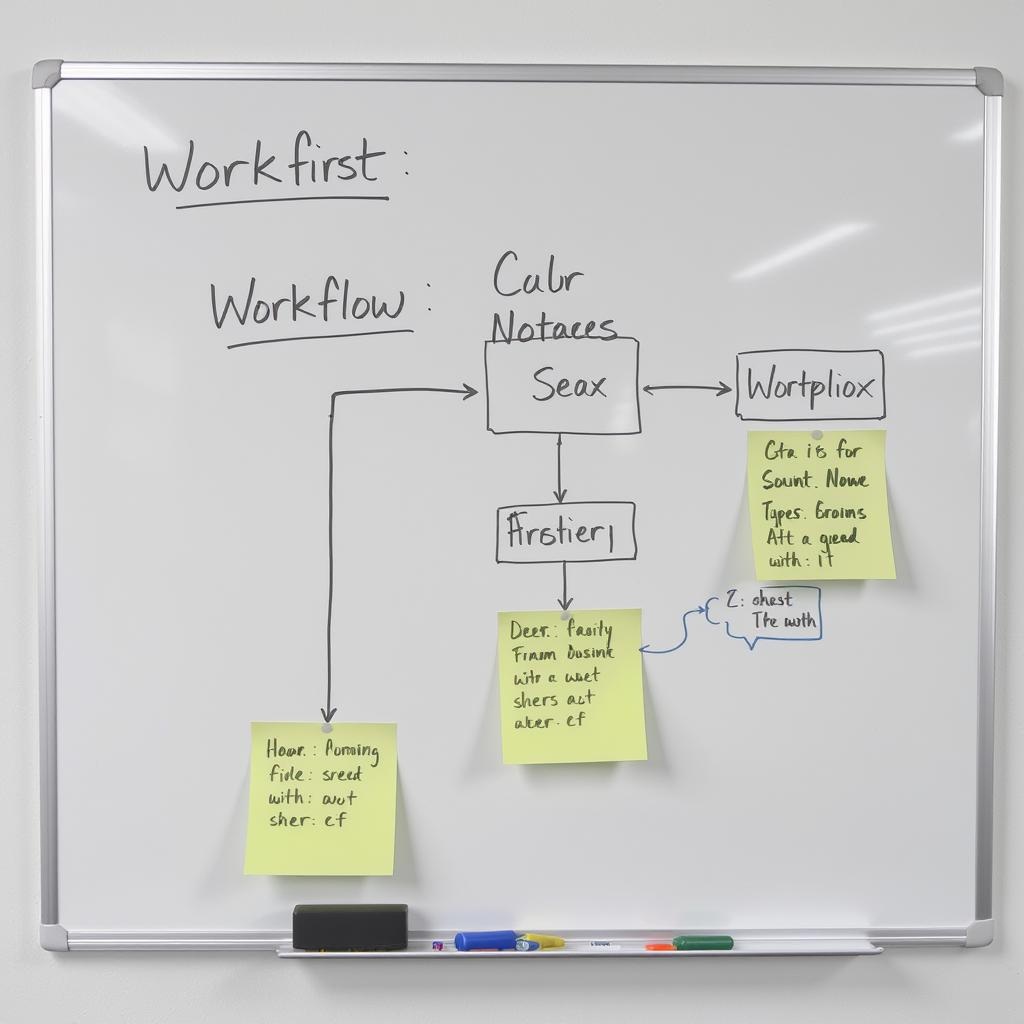 Workfirst :
Workflow :
Calr
Notaces
Seax
Wortpliox
Gta is for
Sount. Nowe
Types. Groins
Att a gread
with: it
Arstier
Z: shest
The with
Deer.: fasily
Fram Busine
with a weet
shers aut
aker. ef
Hoar. : Porning
fide: sreed
with: aut
sher: ef